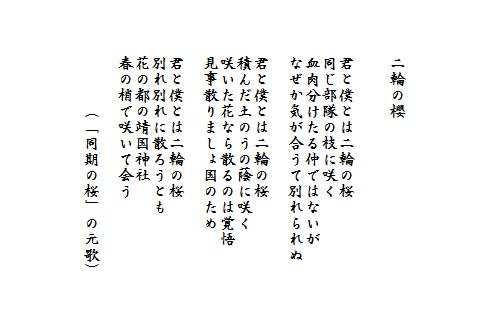 二輪の櫻
君と僕とは二輪の桜
同じ部隊の枝に咲く
血肉分けたる仲ではないが
なぜか気が合うて別れられぬ
君と僕とは二輪の桜
積んだ土のうの蔭に咲く
咲いた花なら散るのは覚悟
見事散りましょ国のため
君と僕とは二輪の桜
別れ別れに散ろうとも
花の都の靖国神社
春の梢で咲いて会う
（「同期の桜」の元歌）